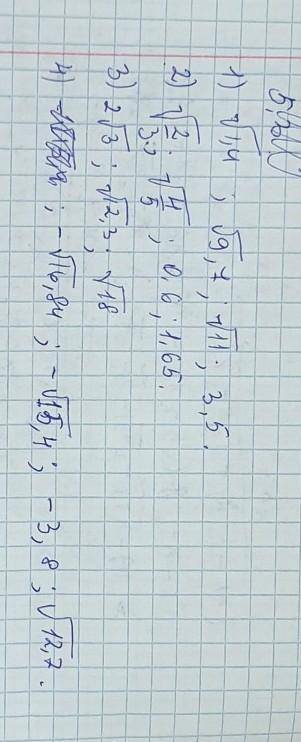 1) √1,4 ; √9,7 ; √11 ; 3,5.
2) √2/3 ; √4/5 ; 0,6 ; 1,65.
3) 2√3 ; √12,3 ; √18
4) ; -√16,84 ; -√15,4 ; -3,8 ; √12,7.